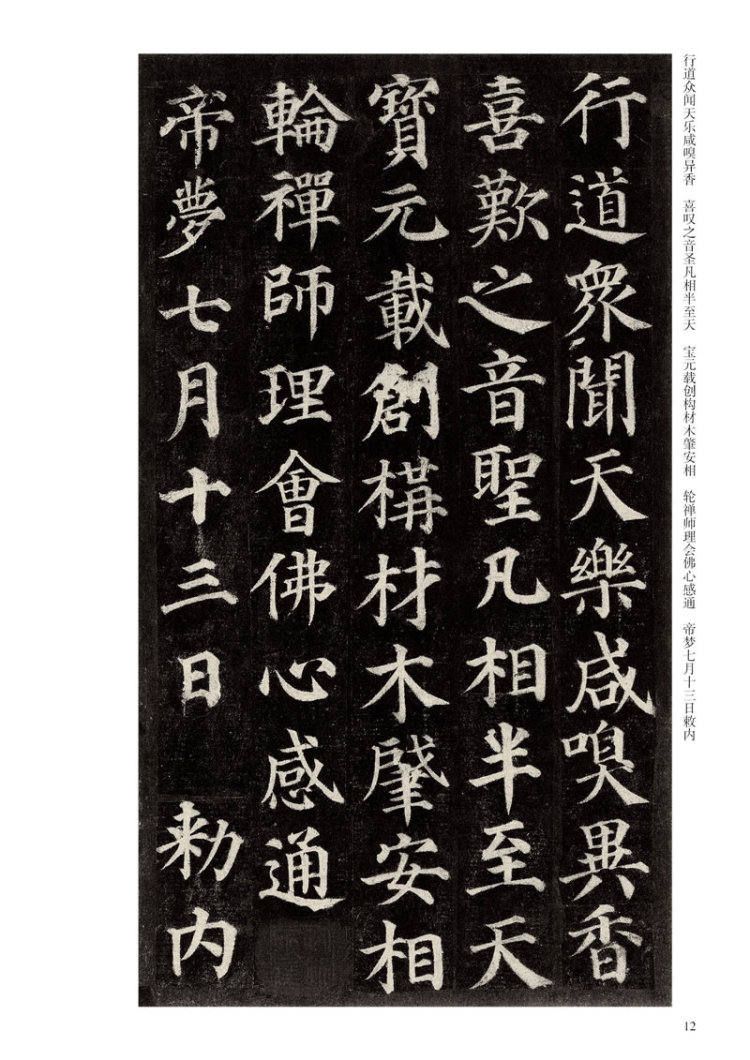 行道众闻天乐咸嗅异香　喜叹之音圣凡相半至天　宝元载创构材木肇安相　轮禅师理会佛心感通　帝梦七月十三日敕内
行道衆聞天樂咸嗅異香
喜歎之音聖凡相半至天
寶元載創構材木肇安相
輪禪師理會佛心感通
帝夢七月十三日　勅内
12